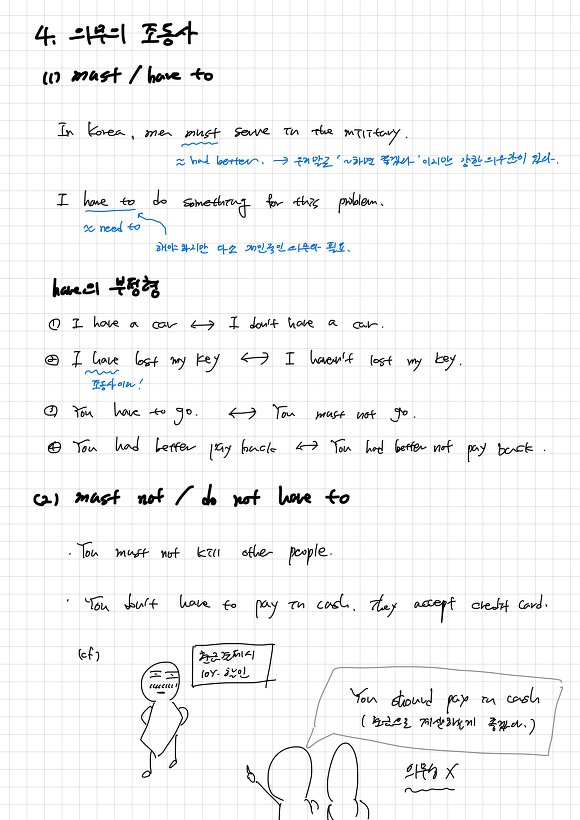 4. 의무의 조동사
(1) must / have to
In Korea, men must serve in the military.
≈ had better. → 우리말로 '~하면 좋겠다' 이지만 강한 의무감이 있다.
I have to do something for this problem.
≈ need to
해야하지만 다소 개인적인 사유와 필요.
have의 부정형
① I have a car ↔ I don't have a car.
② I have lost my key ↔ I haven't lost my key.
조동사이다!
③ You have to go. ↔ You must not go.
④ You had better pay back ↔ You had better not pay back.
(2) must not / do not have to
· You must not kill other people.
· You don't have to pay in cash. They accept credit card.
(cf)
현금결제시
10% 할인
You should pay in cash
(현금으로 계산하는게 좋겠다.)
의무성 X